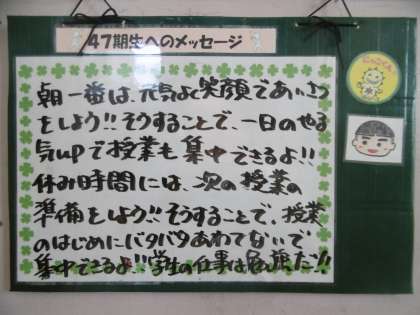 47期生へのメッセージ
朝一番は、元気よく笑顔であいさつ
をしよう!!そうすることで、一日のやる
気upで授業も集中できるよ!!
休み時間には、次の授業の
準備をしよう!!そうすることで、授業
のはじめにバタバタあわてないで
集中できるよ!!学生の仕事は勉強だ!!